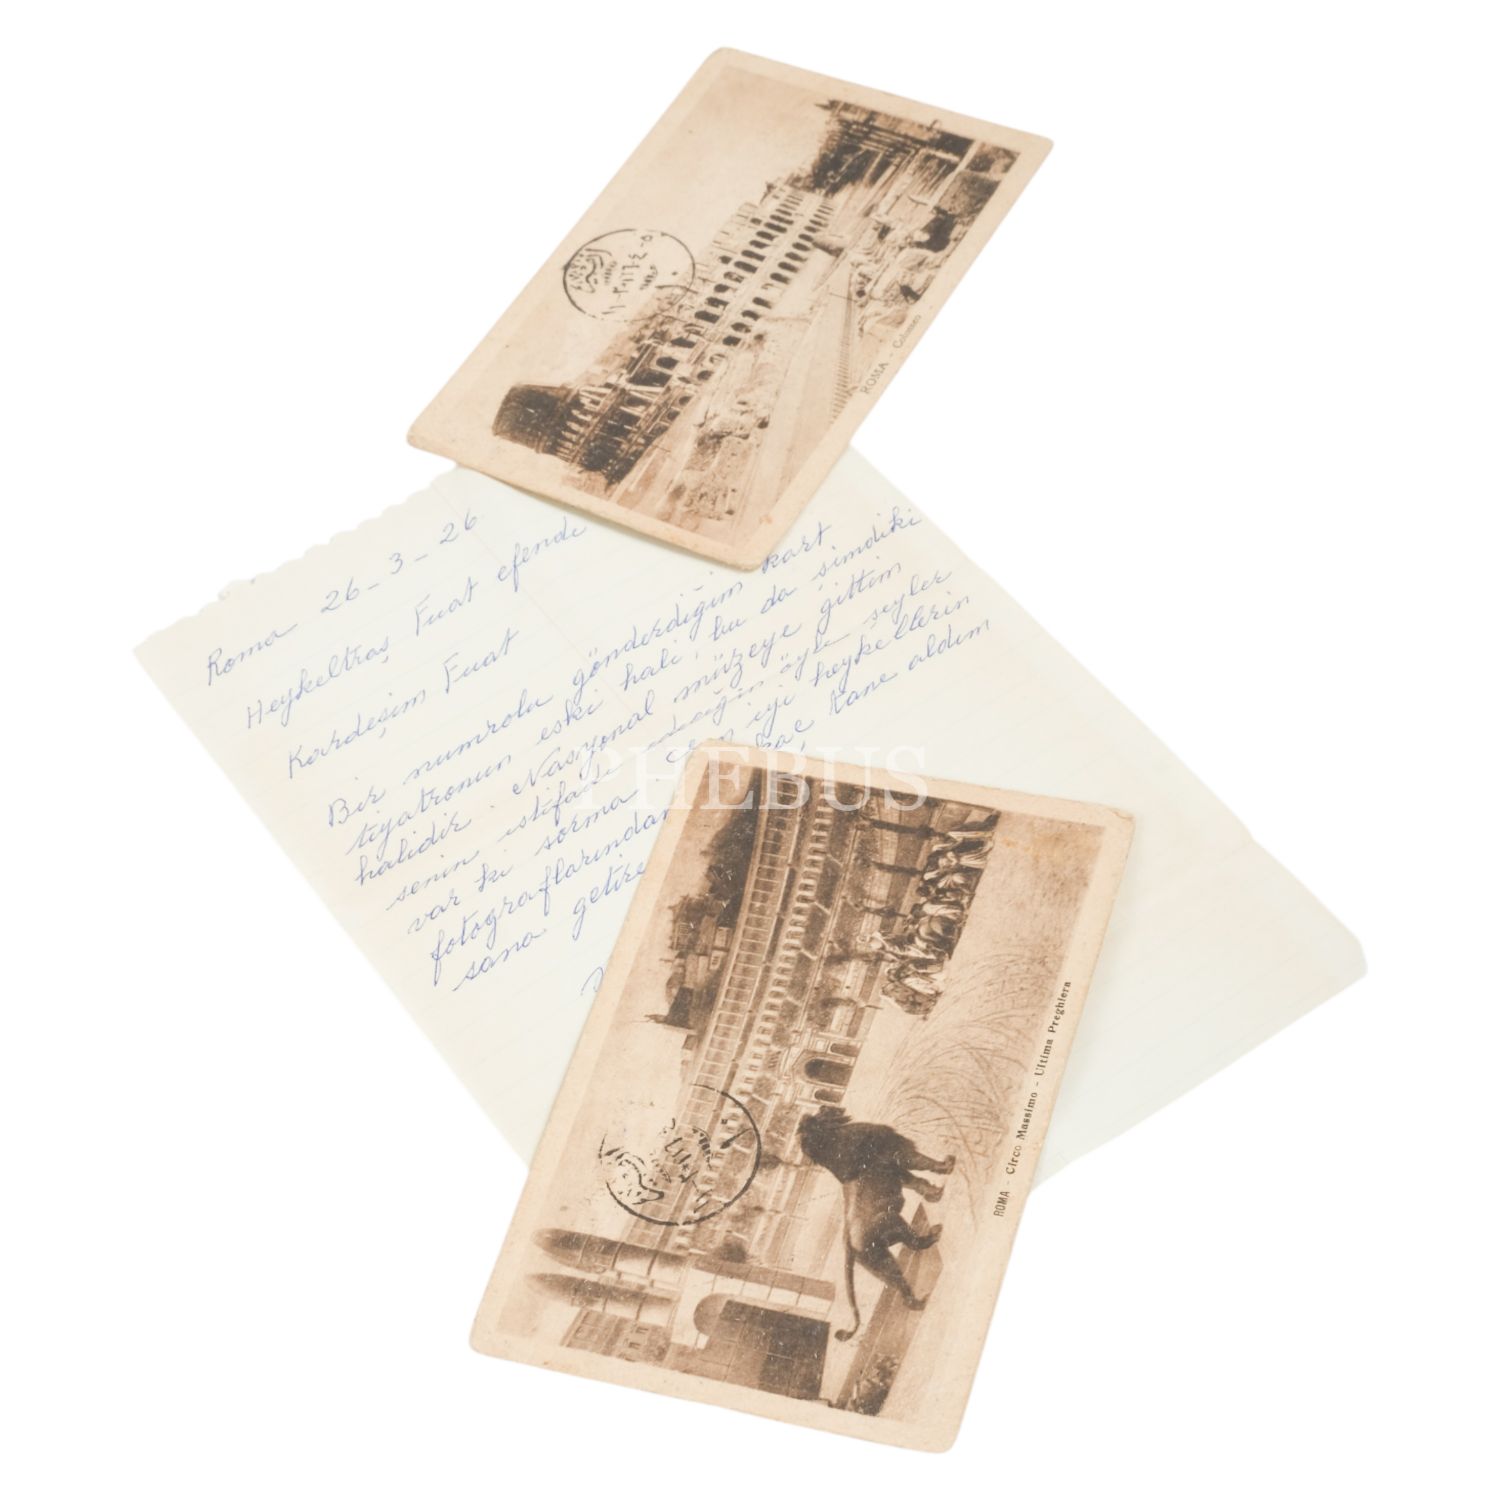 ROMA - Colosseo
Roma 26-3-26
Heykeltraş Fuat efendi
Kardeşim Fuat
Bir numrolu gönderdiğim kart
tiyatronun eski hali, bu da şimdiki
halidir. Nasyonal müzeye gittim
senin istifade edeceğin öyle şeyler
var ki sorma. iyi heykellerin
fotograflarından kaç tane aldım
sana getire
PHEBUS
ROMA - Circo Massimo - Ultima Preghiera